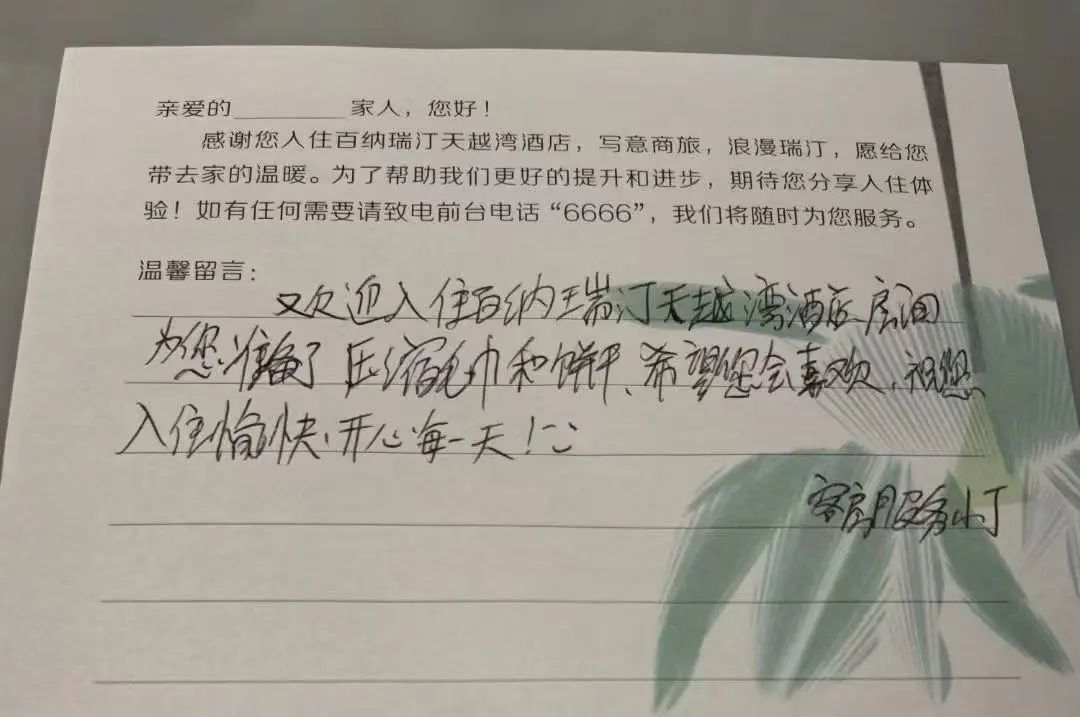 亲爱的________家人，您好！
感谢您入住百纳瑞汀天越湾酒店，写意商旅，浪漫瑞汀，愿给您
带去家的温暖。为了帮助我们更好的提升和进步，期待您分享入住体
验！如有任何需要请致电前台电话“6666”，我们将随时为您服务。
温馨留言：
欢迎入住百纳瑞汀天越湾酒店房间
为您准备了压缩毛巾和饼干、希望您会喜欢、祝您
入住愉快、开心每一天！
客房服务小丁